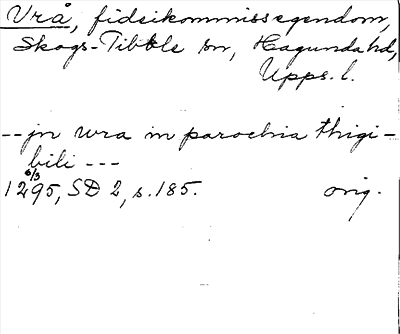 Vrå, fideikommissegendom,
Skogs-Tibble sn, Hagunda hd,
Upps. l.
-- jn wra in parochia thigi-
bili ---
6/3
1295, SD 2, s. 185. orig.